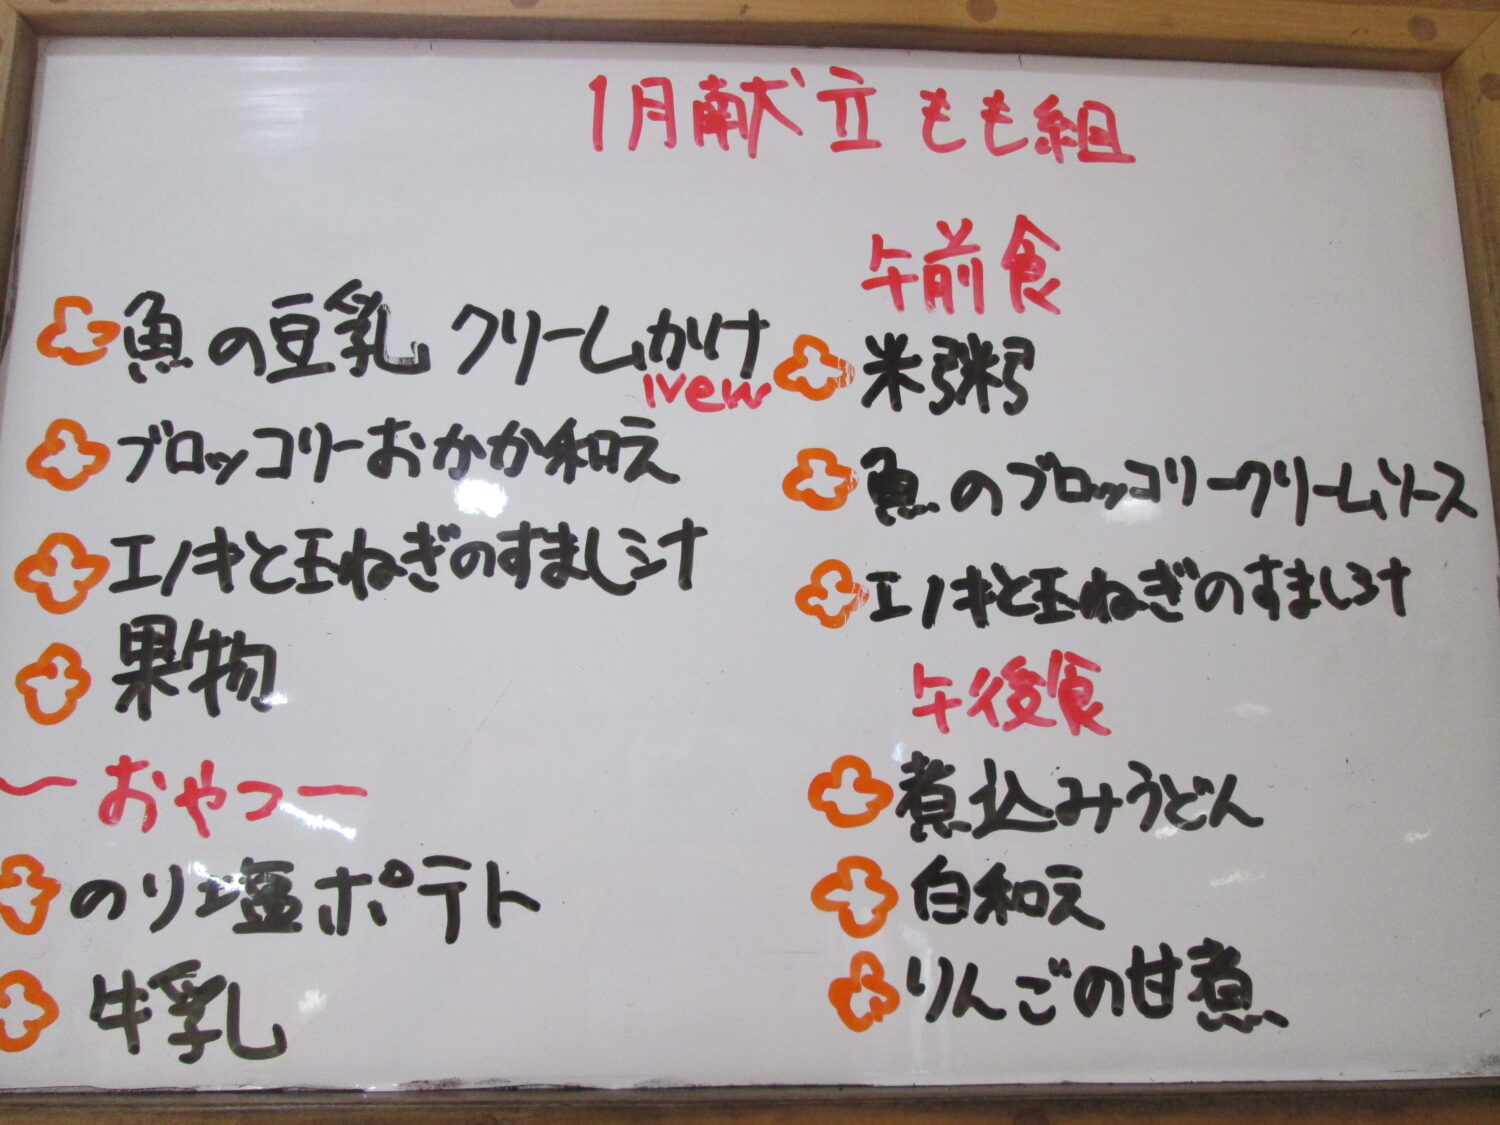 1月献立 もも組
魚の豆乳クリームかけ
New
ブロッコリーおかか和え
エノキと玉ねぎのすまし汁
果物
〜おやつー
のり塩ポテト
牛乳
午前食
米粥
魚のブロッコリークリームソース
エノキと玉ねぎのすまし汁
午後食
煮込みうどん
白和え
りんごの甘煮